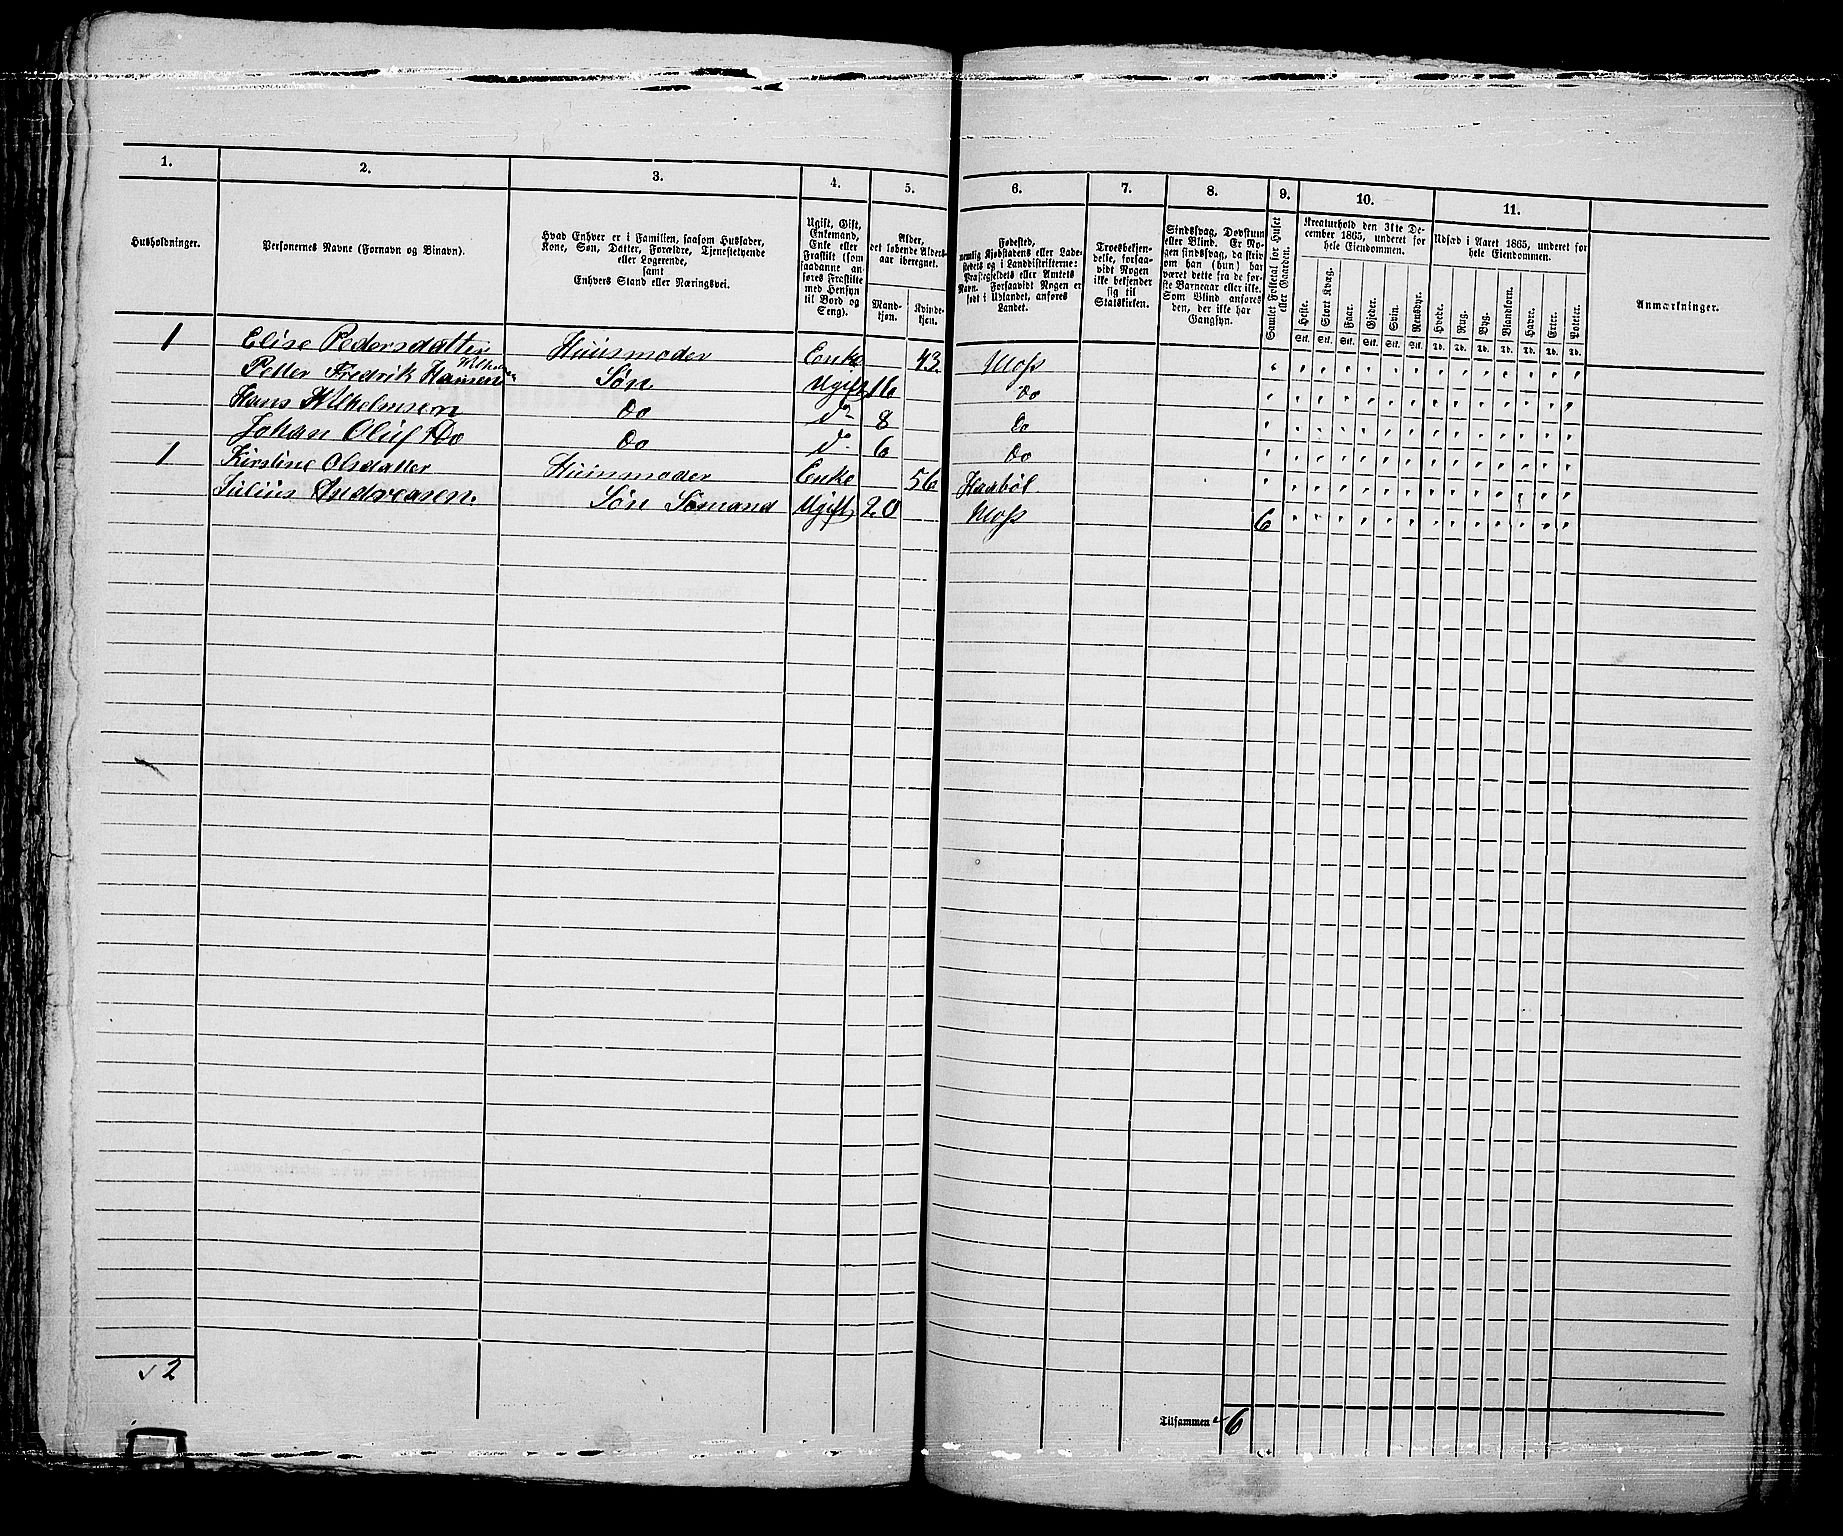 1. 2. 3. 4. 5. 6. 7. 8. 9. 10. 11.
Husholdninger.
Personernes Navne (Fornavn og Binavn).
Hvad Enhver er i Familien, saasom Husfader,
Kone, Søn, Datter, Forældre, Tjenestetyende
eller Logerende,
samt
Enhvers Stand eller Næringsvei.
Ugift, Gift,
Enkemand,
Enke eller
Fraskilt (som
saadanne an-
føres Fraskilte
med Hensyn
til Bord og
Seng).
Alder,
det løbende Alders-
aar iberegnet.
Mand-
kjøn.
Kvinde-
kjøn.
Fødested,
nemlig Kjøbstadens eller Lade-
stedets og i Landdistrikterne:
Præstegjeldets eller Amtets
Navn. Forsaavidt Nogen er
født i Udlandet, anføres
Landet.
Troesbekjen-
delse, forsaa-
vidt Nogen
ikke bekjender
sig til
Statskirken.
Sindssvag, Døvstum
eller Blind. Er No-
gen sindssvag, da skri-
ves om han (hun) har
været dette fra de før-
ste Barneaar eller ikke.
Som Blind anføres
den, der ikke har
Gangsyn.
Samlet Folketal for Huset
eller Gaarden.
Kreaturhold den 31te De-
cember 1865, underet for
hele Eiendommen.
Heste. Stort Kvæg. Faar. Gjeder. Svin. Rensdyr.
Stk. Stk. Stk. Stk. Stk. Stk.
Udsæd i Aaret 1865, underet for
hele Eiendommen.
Hvede. Rug. Byg. Blandkorn. Havre. Erter. Poteter.
Td. Td. Td. Td. Td. Td. Td.
Anmærkninger.
1 Elise Pedersdatter Huusmoder Enke 43 Moss
Petter Fredrik Hansen Søn Ugift 16 Do
Hans Wilhelmsen Do do 8 Do
Johan Oluf Do Do do 6 Do
1 Kirstine Olsdatter Huusmoder Enke 56 Haabøl
Julius Andreasen. Søn Sømand Ugift 20 Moss 6
2
Tilsammen 6